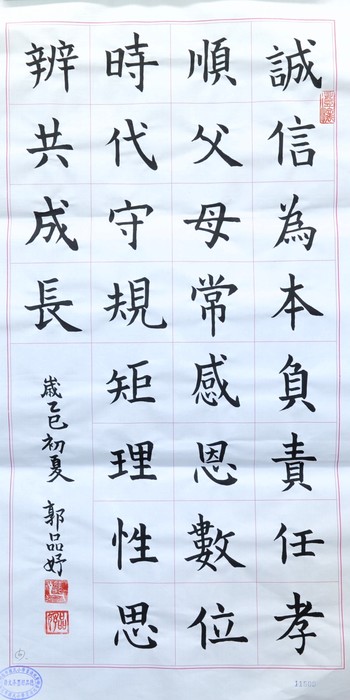 誠信為本負責任孝
順父母常感恩數位
時代守規矩理性思
辨共成長
歲乙巳初夏 郭品妤